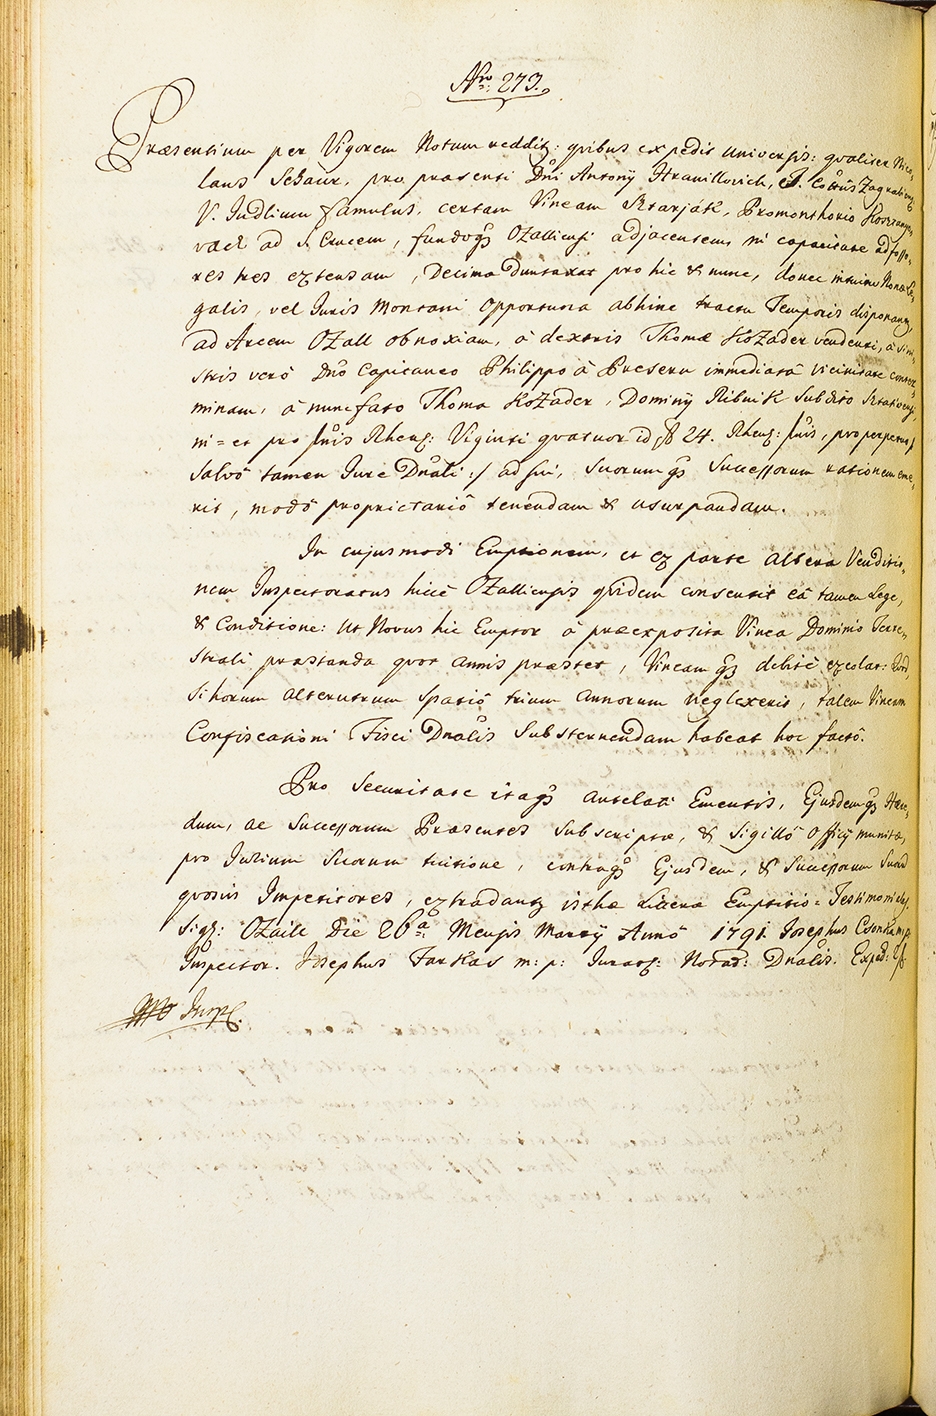 Nro: 273.
Præsentium per Vigorem Notum redditz: quibus expedit universis: qualiter Nico=
laus Schaur, pro præsenti Dni Antonij Hranillovich, Cottus Zagrabiens
V. Judlium famulus, certam Vineam Starjak, Promonthorio
vach ad S. Crucem, fundoqz Ozalliensi adjacentem in capacitate ad fosso=
res tres extensam, Decimæ Duntaxat pro hic & nunc, donec nimirum Nonæ Le=
galis, vel Juris Montani opportuna abhinc tractu Temporis disponantur,
ad Arcem Ozall obnoxiam, à dextris Thomæ Kozader vendenti, à sini=
stris verò Dno Capitaneo Philippo à Preseru immediatâ vicinitate conter=
minam, à nunefato Thoma Kozader, Dominij Ribnik Subdito
ni = et pro flnis Rhenz: Viginti quatuor id est 24. Rhenz: flnis, pro perpetuo /
salvô tamen Jure Dnali :/ ad sui, suorumqz Successorum rationem eme=
rit, modô proprietariô tenendam & usurpandam.
In cujusmodi Emptionem, et ex parte altera Venditio=
nem Inspectoratus hicce Ozalliensis quidem consensit eâ tamen Lege,
& Conditione: Ut Novus hic Emptor à præexposita Vinea Dominio Terre=
strali præstanda quot annis præstet, Vineam qz debitè excolat: Quod
si horum alterutrum spatiô trium annorum neglexerit, talem Vineam
Confiscationi Fisci Dnalis Substernendam habeat hoc factô.
Pro Securitate itaqz antelati Ementis, Ejusdemqz Hære=
dum, ac Successorum Præsentes subscriptæ, & Sigillô Officij munitæ,
pro Jurium suorum tuitione, contraqz Ejusdem, & Successorum suorum
quosvis Impetitores, extradantz isthæ Literæ Emptitio = Testimoniales.
Sigz: Ozaill Die 26a: Mensis Martij Annô 1791. Josephus
Inspector. Josephus Farkas m: p: Juratz: Notar: Dnalis. Exped: